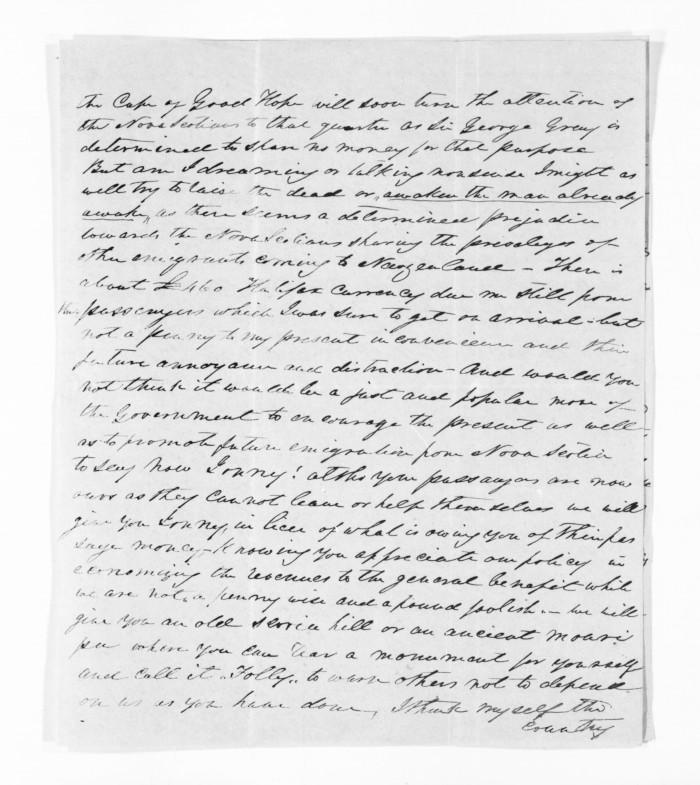 the Cape of Good Hope will soon turn the attention of
the Nova Scotians to that quarter as Sir George Grey is
determined to spare no money for that purpose
But am I dreaming or talking nonsense I might as
well try to raise the dead or "awaken the man already
awake" as there seems a determined prejudice
towards the Nova Scotians sharing the privileges of
other emigrants coming to New Zealand – There is
about £460 Halifax currency due me still from
passengers which I was sure to get on arrival – but
not a penny to my present inconvenience and their
future annoyance and distraction – And would you
not think it would be a just and popular move of
the Government to encourage the present as well
as to promote future emigration from Nova Scotia
to say now Jonny! your passengers are now
ours as they cannot leave or help themselves we will
give you Jonny, in lieu of what is owing you of their pas
sage money – Knowing you appreciate our policy in
economizing the revenues to the general benefit while
we are not, a penny wise and a pound foolish – we will
give you an old hill or an ancient mouri
pa where you can rear a monument for yourself
and call it "Folly" to warn others not to depend
on us as you have done, I think myself the
Country